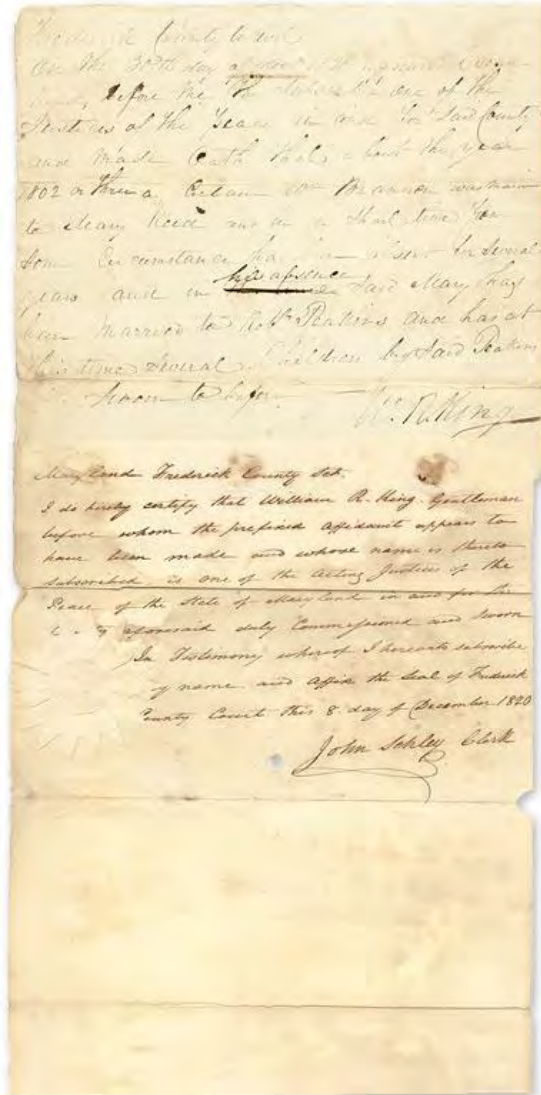 Frederick County to wit
On the 30th day of
before the the Subscriber one of the
Justices of the Peace in and for Said County
and made Oath that about the year
1802 or three a Certain Wm Brannon was
to Mary Reed and in a Short time for
Some Circumstance has been absent for Several
years and in his absence Said Mary has
been Married to Robt Peakins and has at
this time Several Children by Said Peakins
Sworn to before
Wm R. King
Maryland Frederick County Sct.
I do hereby certify that William R. King Gentleman
before whom the prefixed Affidavit appears to
have been made and whose name is thereto
subscribed, is one of the Acting Justices of the
Peace of the State of Maryland in and for the
aforesaid duly Commissioned and Sworn
In Testimony whereof I hereunto subscribe
my name and Affix the Seal of Frederick
County Court this 8 day of December 1820
John Schley Clerk